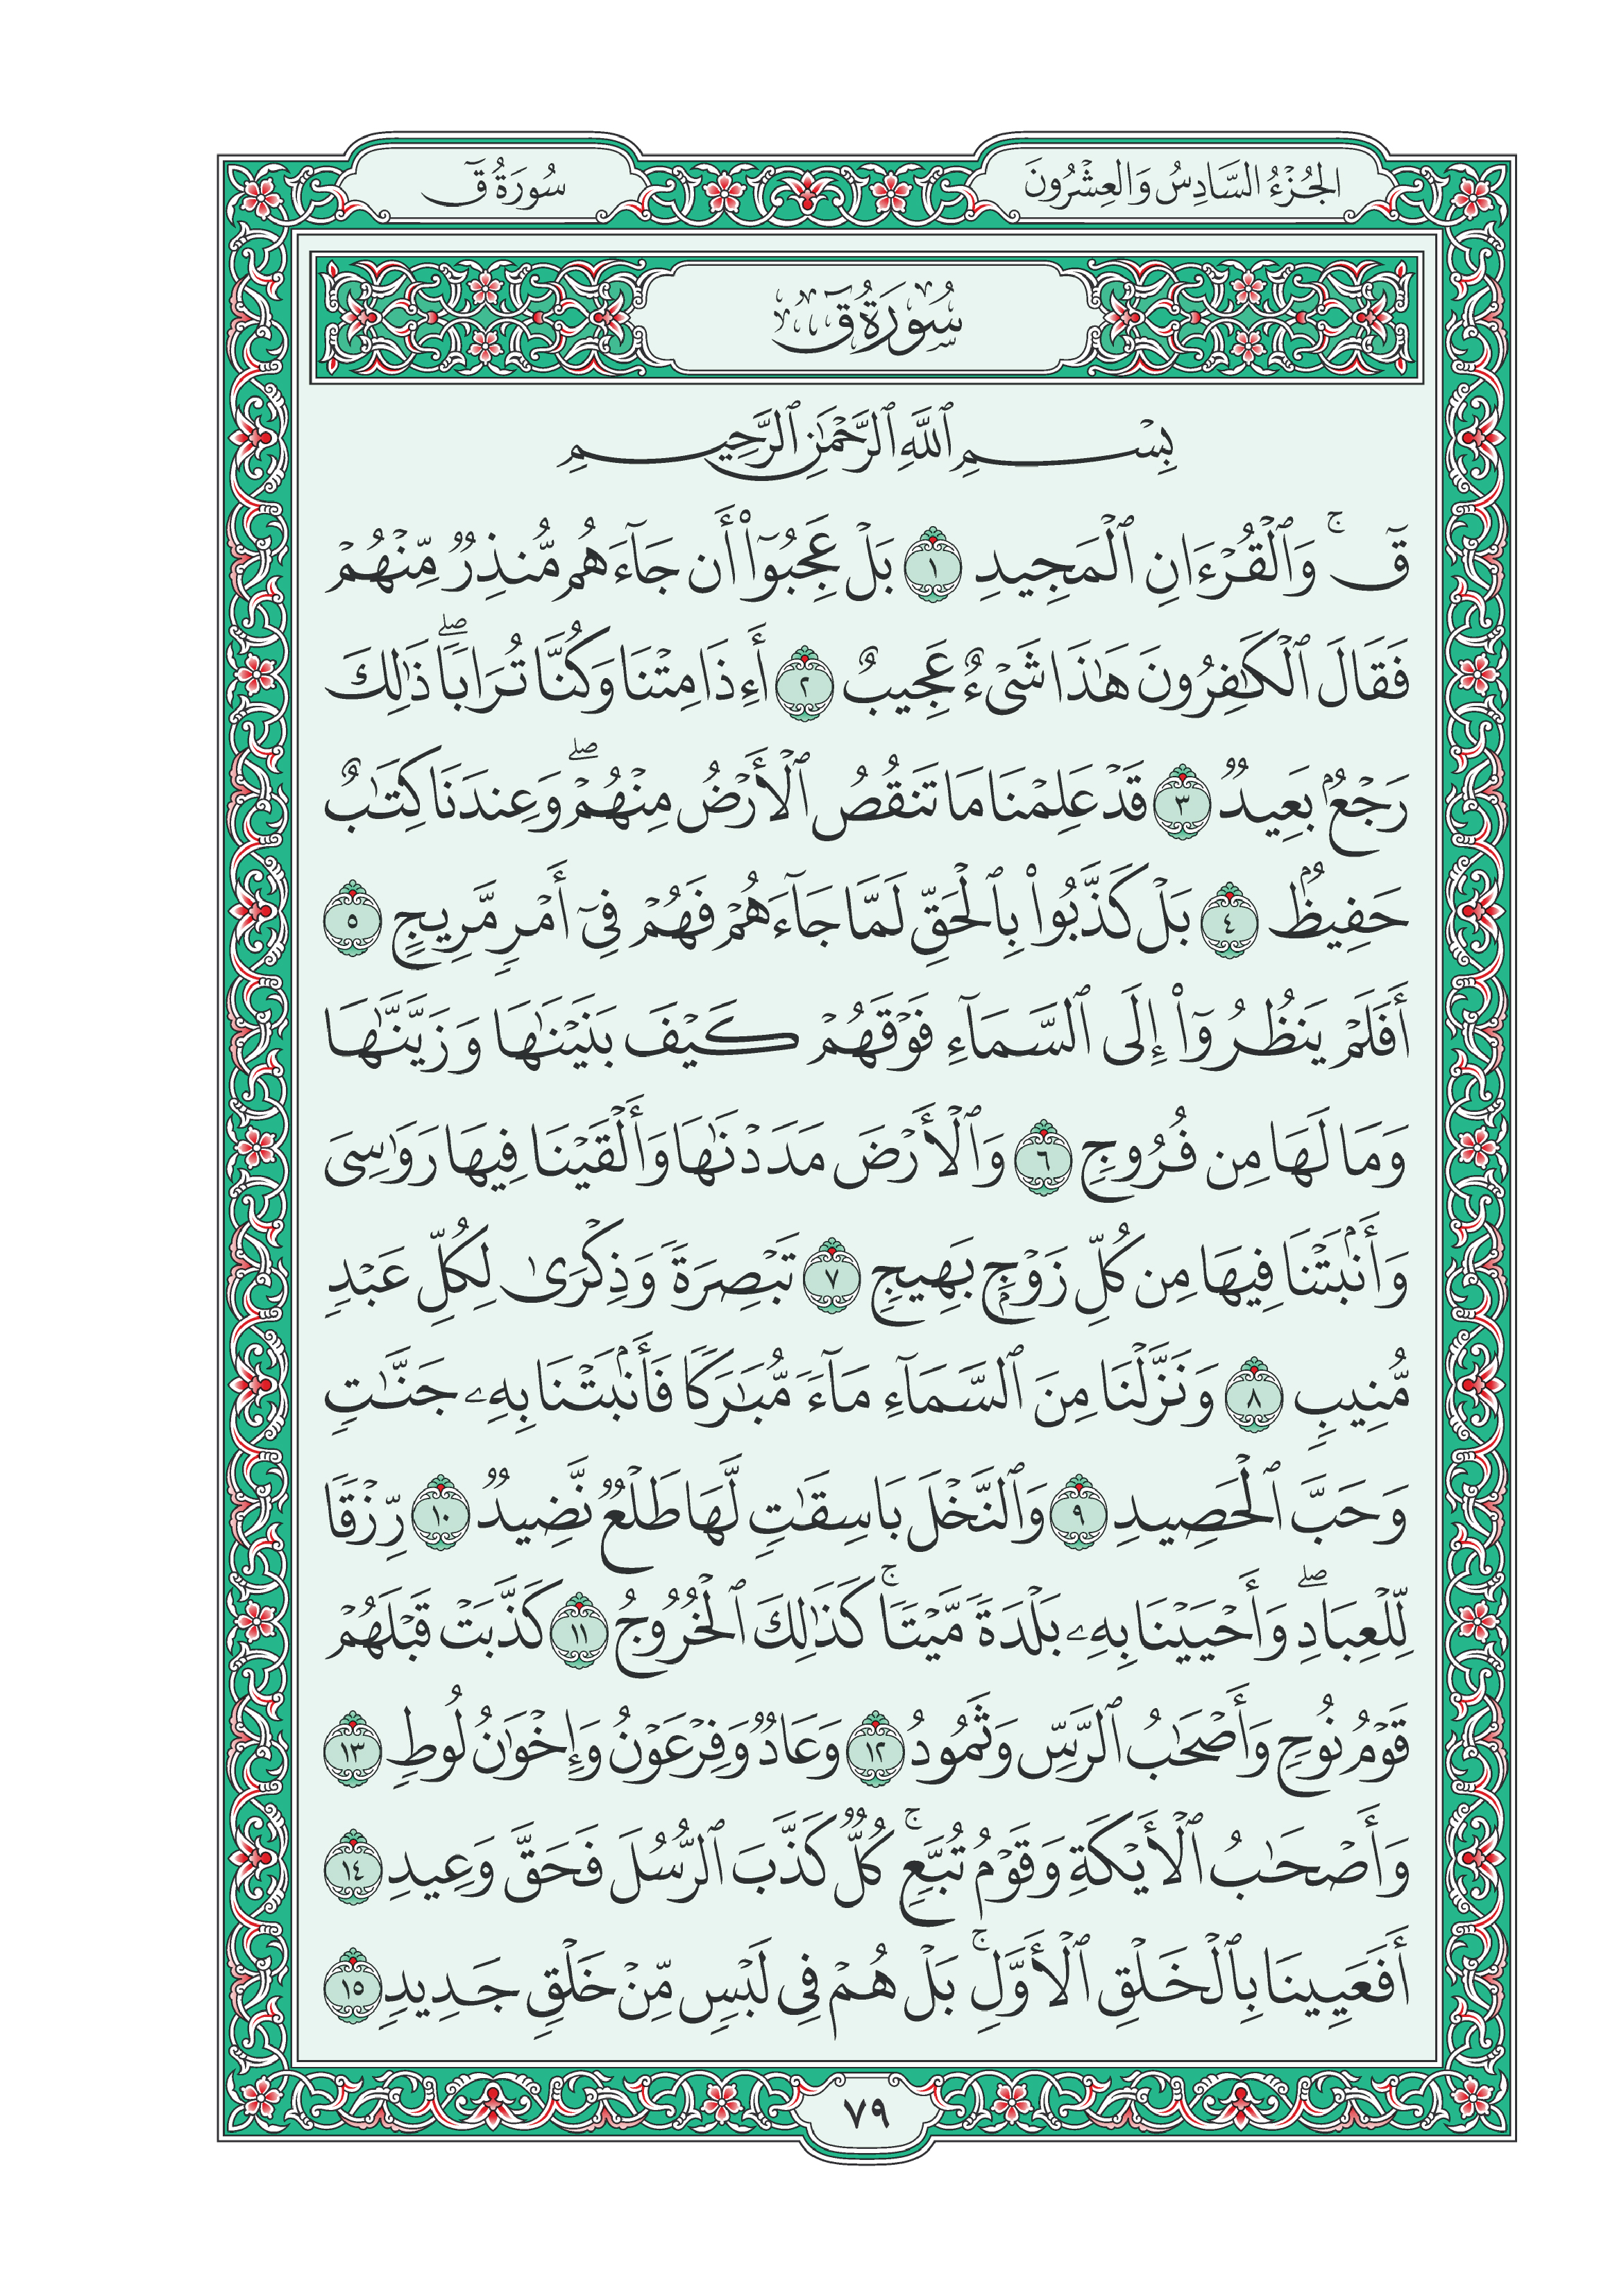 الجُزْءُ السَّادِسُ وَالعِشْرُونَ
سُورَةُ قٓ
سُورَةُ قٓ
بِسْمِ ٱللَّهِ ٱلرَّحْمَٰنِ ٱلرَّحِيمِ
قٓۚ وَٱلْقُرْءَانِ ٱلْمَجِيدِ ١ بَلْ عَجِبُوٓا۟ أَن جَآءَهُم مُّنذِرٌ مِّنْهُمْ
فَقَالَ ٱلْكَٰفِرُونَ هَٰذَا شَىْءٌ عَجِيبٌ ٢ أَءِذَا مِتْنَا وَكُنَّا تُرَابًاۖ ذَٰلِكَ
رَجْعٌۢ بَعِيدٌ ٣ قَدْ عَلِمْنَا مَا تَنقُصُ ٱلْأَرْضُ مِنْهُمْۖ وَعِندَنَا كِتَٰبٌ
حَفِيظٌۢ ٤ بَلْ كَذَّبُوا۟ بِٱلْحَقِّ لَمَّا جَآءَهُمْ فَهُمْ فِىٓ أَمْرٍ مَّرِيجٍ ٥
أَفَلَمْ يَنظُرُوٓا۟ إِلَى ٱلسَّمَآءِ فَوْقَهُمْ كَيْفَ بَنَيْنَٰهَا وَزَيَّنَّٰهَا
وَمَا لَهَا مِن فُرُوجٍ ٦ وَٱلْأَرْضَ مَدَدْنَٰهَا وَأَلْقَيْنَا فِيهَا رَوَٰسِىَ
وَأَنۢبَتْنَا فِيهَا مِن كُلِّ زَوْجٍۭ بَهِيجٍ ٧ تَبْصِرَةً وَذِكْرَىٰ لِكُلِّ عَبْدٍ
مُّنِيبٍ ٨ وَنَزَّلْنَا مِنَ ٱلسَّمَآءِ مَآءً مُّبَٰرَكًا فَأَنۢبَتْنَا بِهِۦ جَنَّٰتٍ
وَحَبَّ ٱلْحَصِيدِ ٩ وَٱلنَّخْلَ بَاسِقَٰتٍ لَّهَا طَلْعٌ نَّضِيدٌ ١٠ رِّزْقًا
لِّلْعِبَادِۖ وَأَحْيَيْنَا بِهِۦ بَلْدَةً مَّيْتًاۚ كَذَٰلِكَ ٱلْخُرُوجُ ١١ كَذَّبَتْ قَبْلَهُمْ
قَوْمُ نُوحٍ وَأَصْحَٰبُ ٱلرَّسِّ وَثَمُودُ ١٢ وَعَادٌ وَفِرْعَوْنُ وَإِخْوَٰنُ لُوطٍ ١٣
وَأَصْحَٰبُ ٱلْأَيْكَةِ وَقَوْمُ تُبَّعٍۚ كُلٌّ كَذَّبَ ٱلرُّسُلَ فَحَقَّ وَعِيدِ ١٤
أَفَعَيِينَا بِٱلْخَلْقِ ٱلْأَوَّلِۚ بَلْ هُمْ فِى لَبْسٍ مِّنْ خَلْقٍ جَدِيدٍ ١٥
٧٩